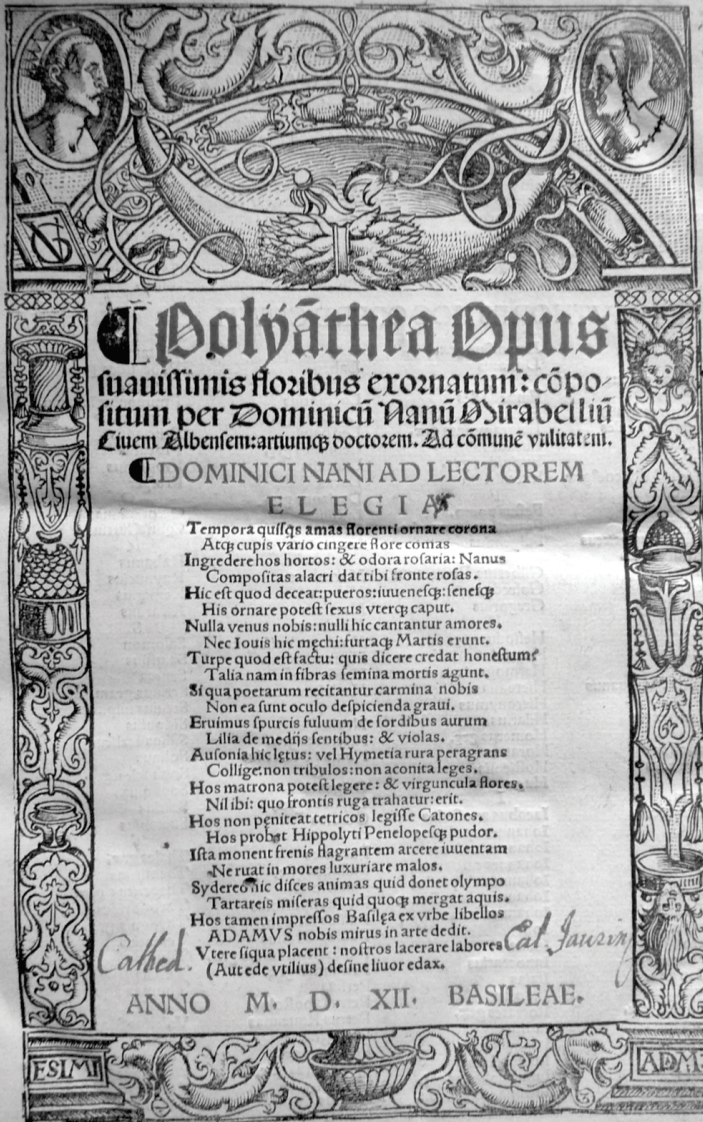 Polyãthea Opus
suauissimis floribus exornatum: cõpo-
situm per Dominicũ Nanũ Mirabelliũ
Ciuem Albensem: artiumq; doctorem. Ad cõmunẽ vtilitatem.
DOMINICI NANI AD LECTOREM
ELEGIA
Tempora quisq̃s amas florenti ornare corona
Atq; cupis vario cingere flore comas
Ingredere hos hortos: & odora rosaria: Nanus
Compositas alacri dat tibi fronte rosas.
Hic est quod deceat: pueros: iuuenesq;: senesq;
His ornare potest sexus vterq; caput.
Nulla venus nobis: nulli hic cantantur amores.
Nec Iouis hic męchi: furtaq; Martis erunt.
Turpe quod est factu: quis dicere credat honestum?
Talia nam in fibras semina mortis agunt.
Si qua poetarum recitantur carmina nobis
Non ea sunt oculo despicienda graui.
Eruimus spurcis fuluum de sordibus aurum
Lilia de medijs sentibus: & violas.
Ausonia hic lętus: vel Hymetia rura peragrans
Collige: non tribulos: non aconita leges.
Hos matrona potest legere: & virguncula flores.
Nil ibi: quo frontis ruga trahatur: erit.
Hos non pęniteat tetricos legisse Catones.
Hos probat Hippolyti Penelopesq; pudor.
Ista monent frenis flagrantem arcere iuuentam
Ne ruat in mores luxuriare malos.
Sydereo hic disces animas quid donet olympo
Tartareis miseras quid quoq; mergat aquis.
Hos tamen impressos Basilęa ex vrbe libellos
ADAMVS nobis mirus in arte dedit.
Vtere siqua placent: nostros lacerare labores
(Aut ede vtilius) desine liuor edax.
Cathed.
Cal. Jaurin
ANNO M. D. XII. BASILEAE.
ESIMI
ADMI